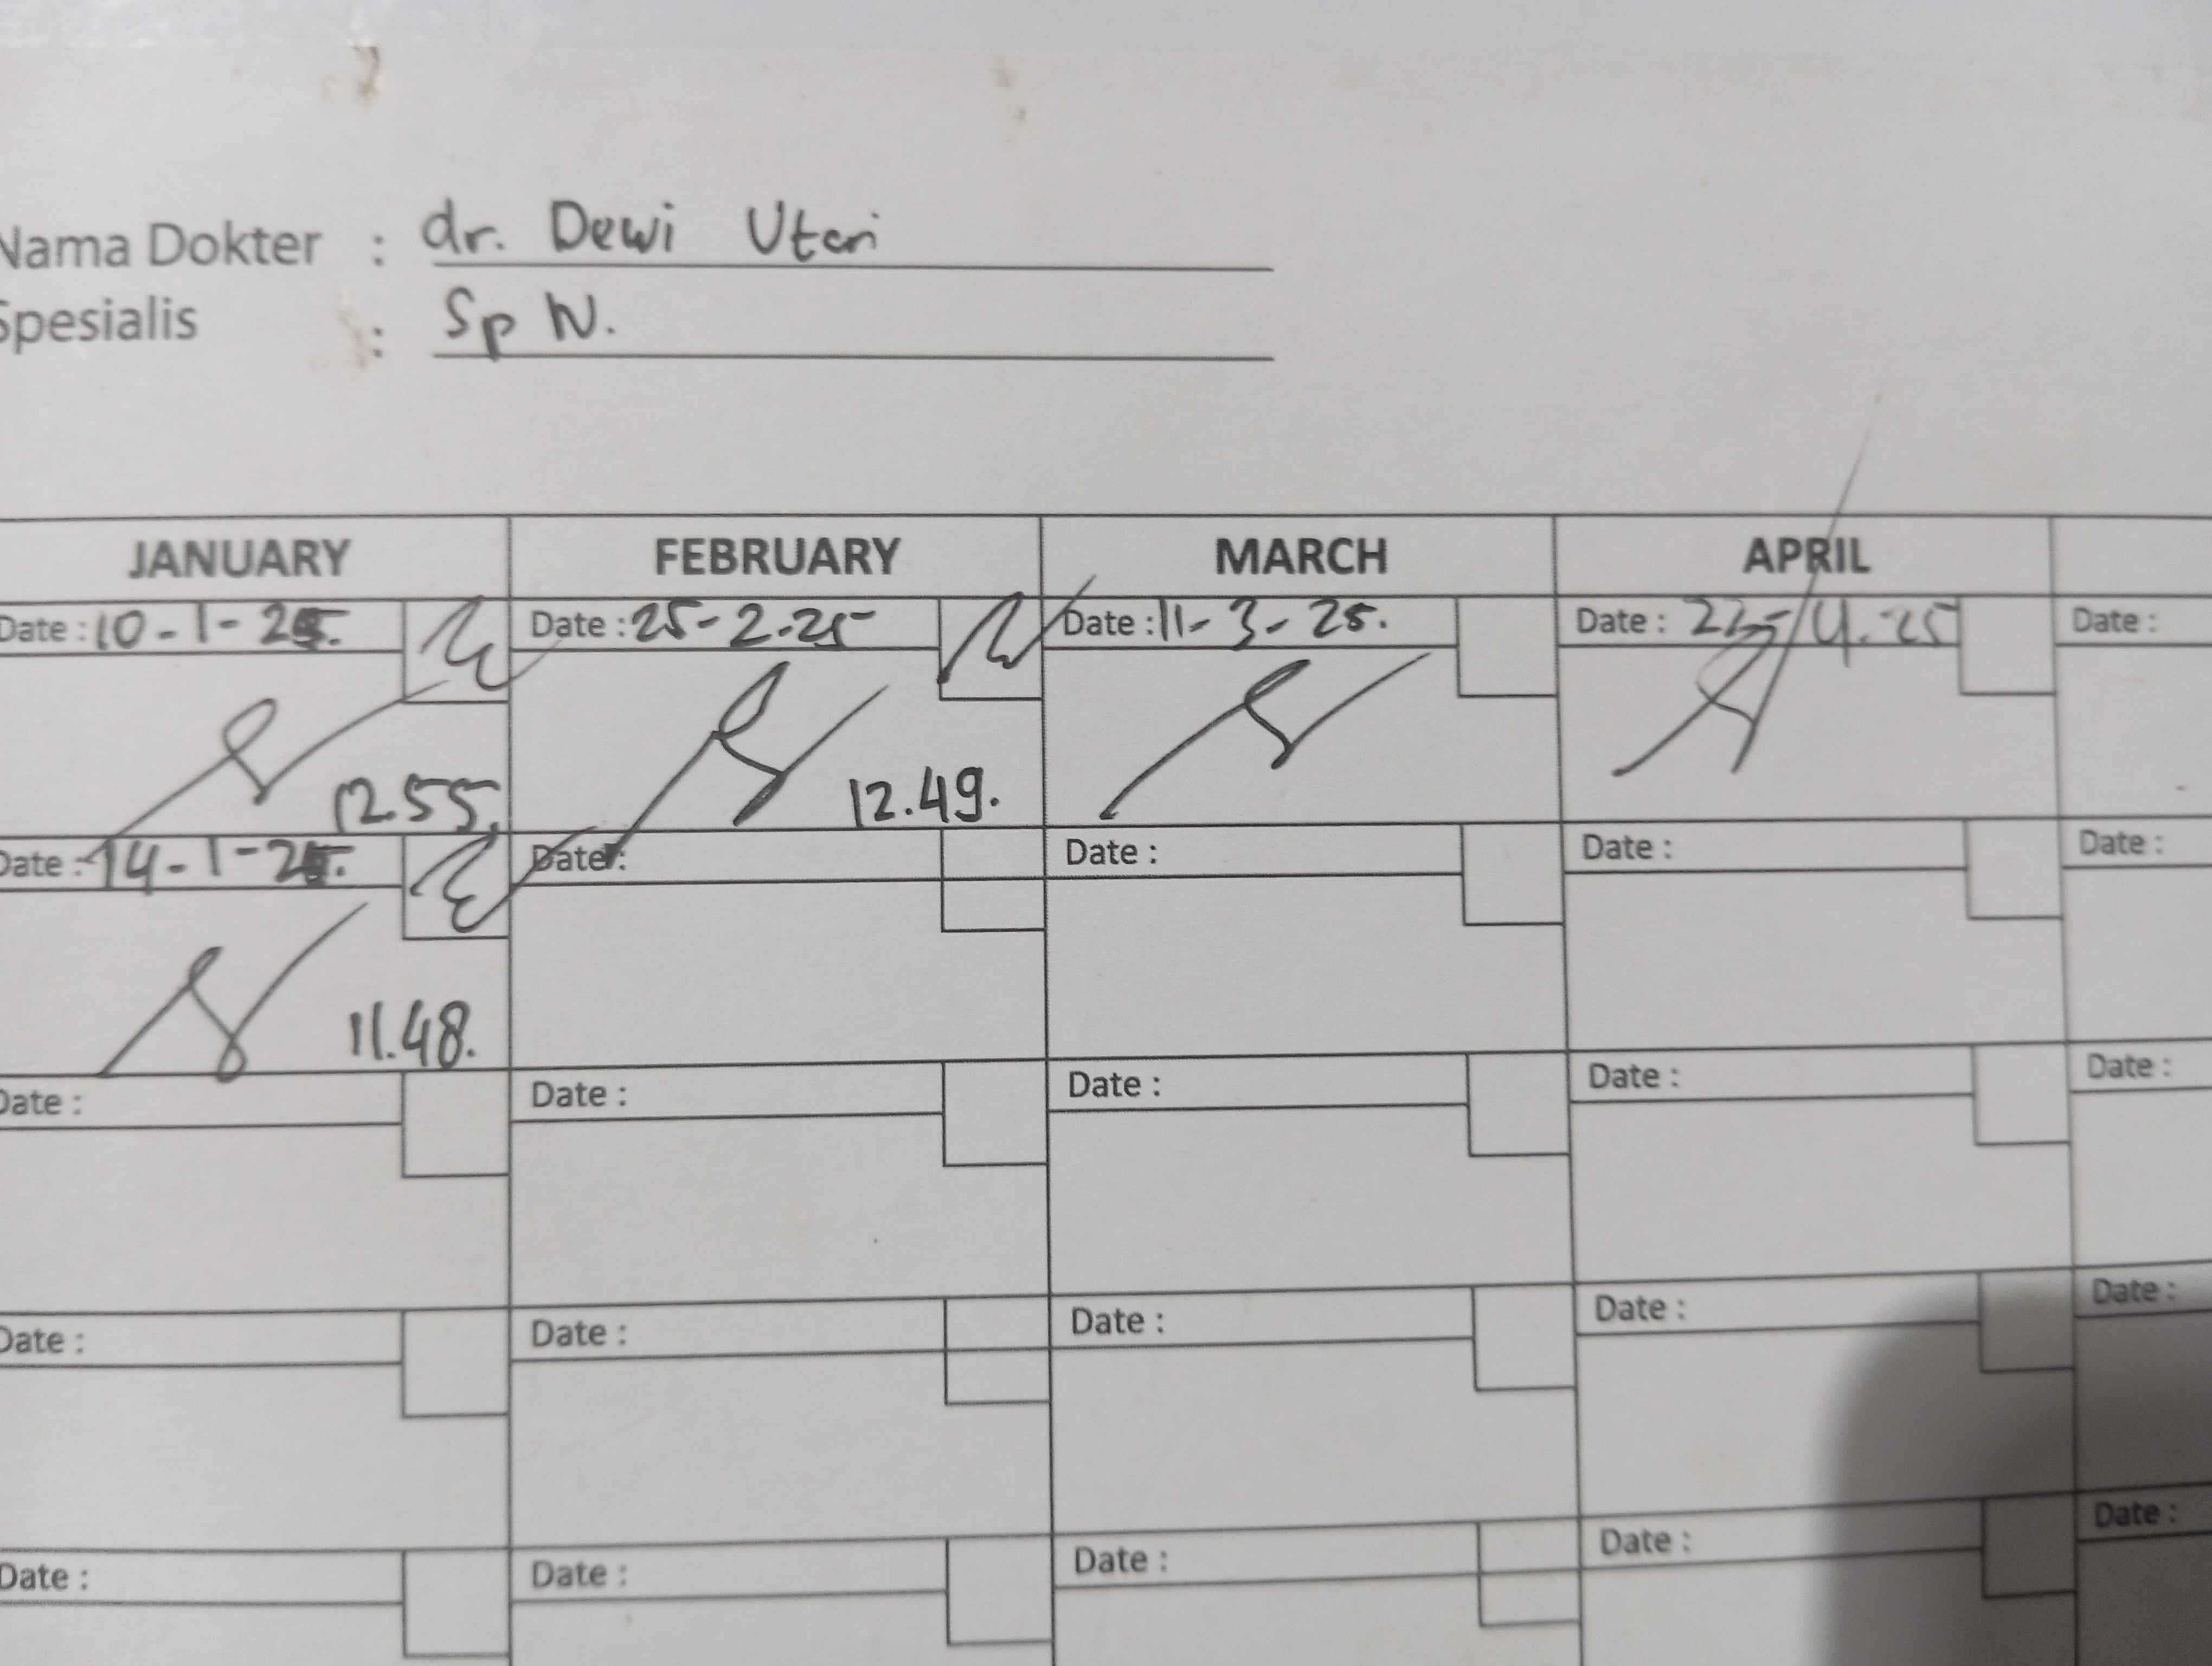 Nama Dokter : dr. Dewi Utari
Spesialis : Sp N.
JANUARY FEBRUARY MARCH APRIL
Date : 10-1-25. Date : 25-2-25 Date : 11-3-25. Date : 4.25 Date :
12.55. 12.49.
Date : 14-1-25. Date : Date : Date : Date :
11.48.
Date : Date : Date : Date : Date :
Date : Date : Date : Date : Date :
Date : Date : Date : Date : Date :